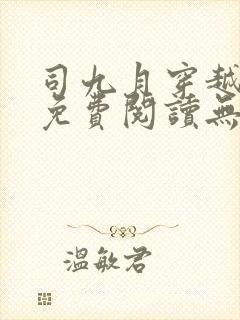 司九月穿越
免費閱讀無
溫敏君